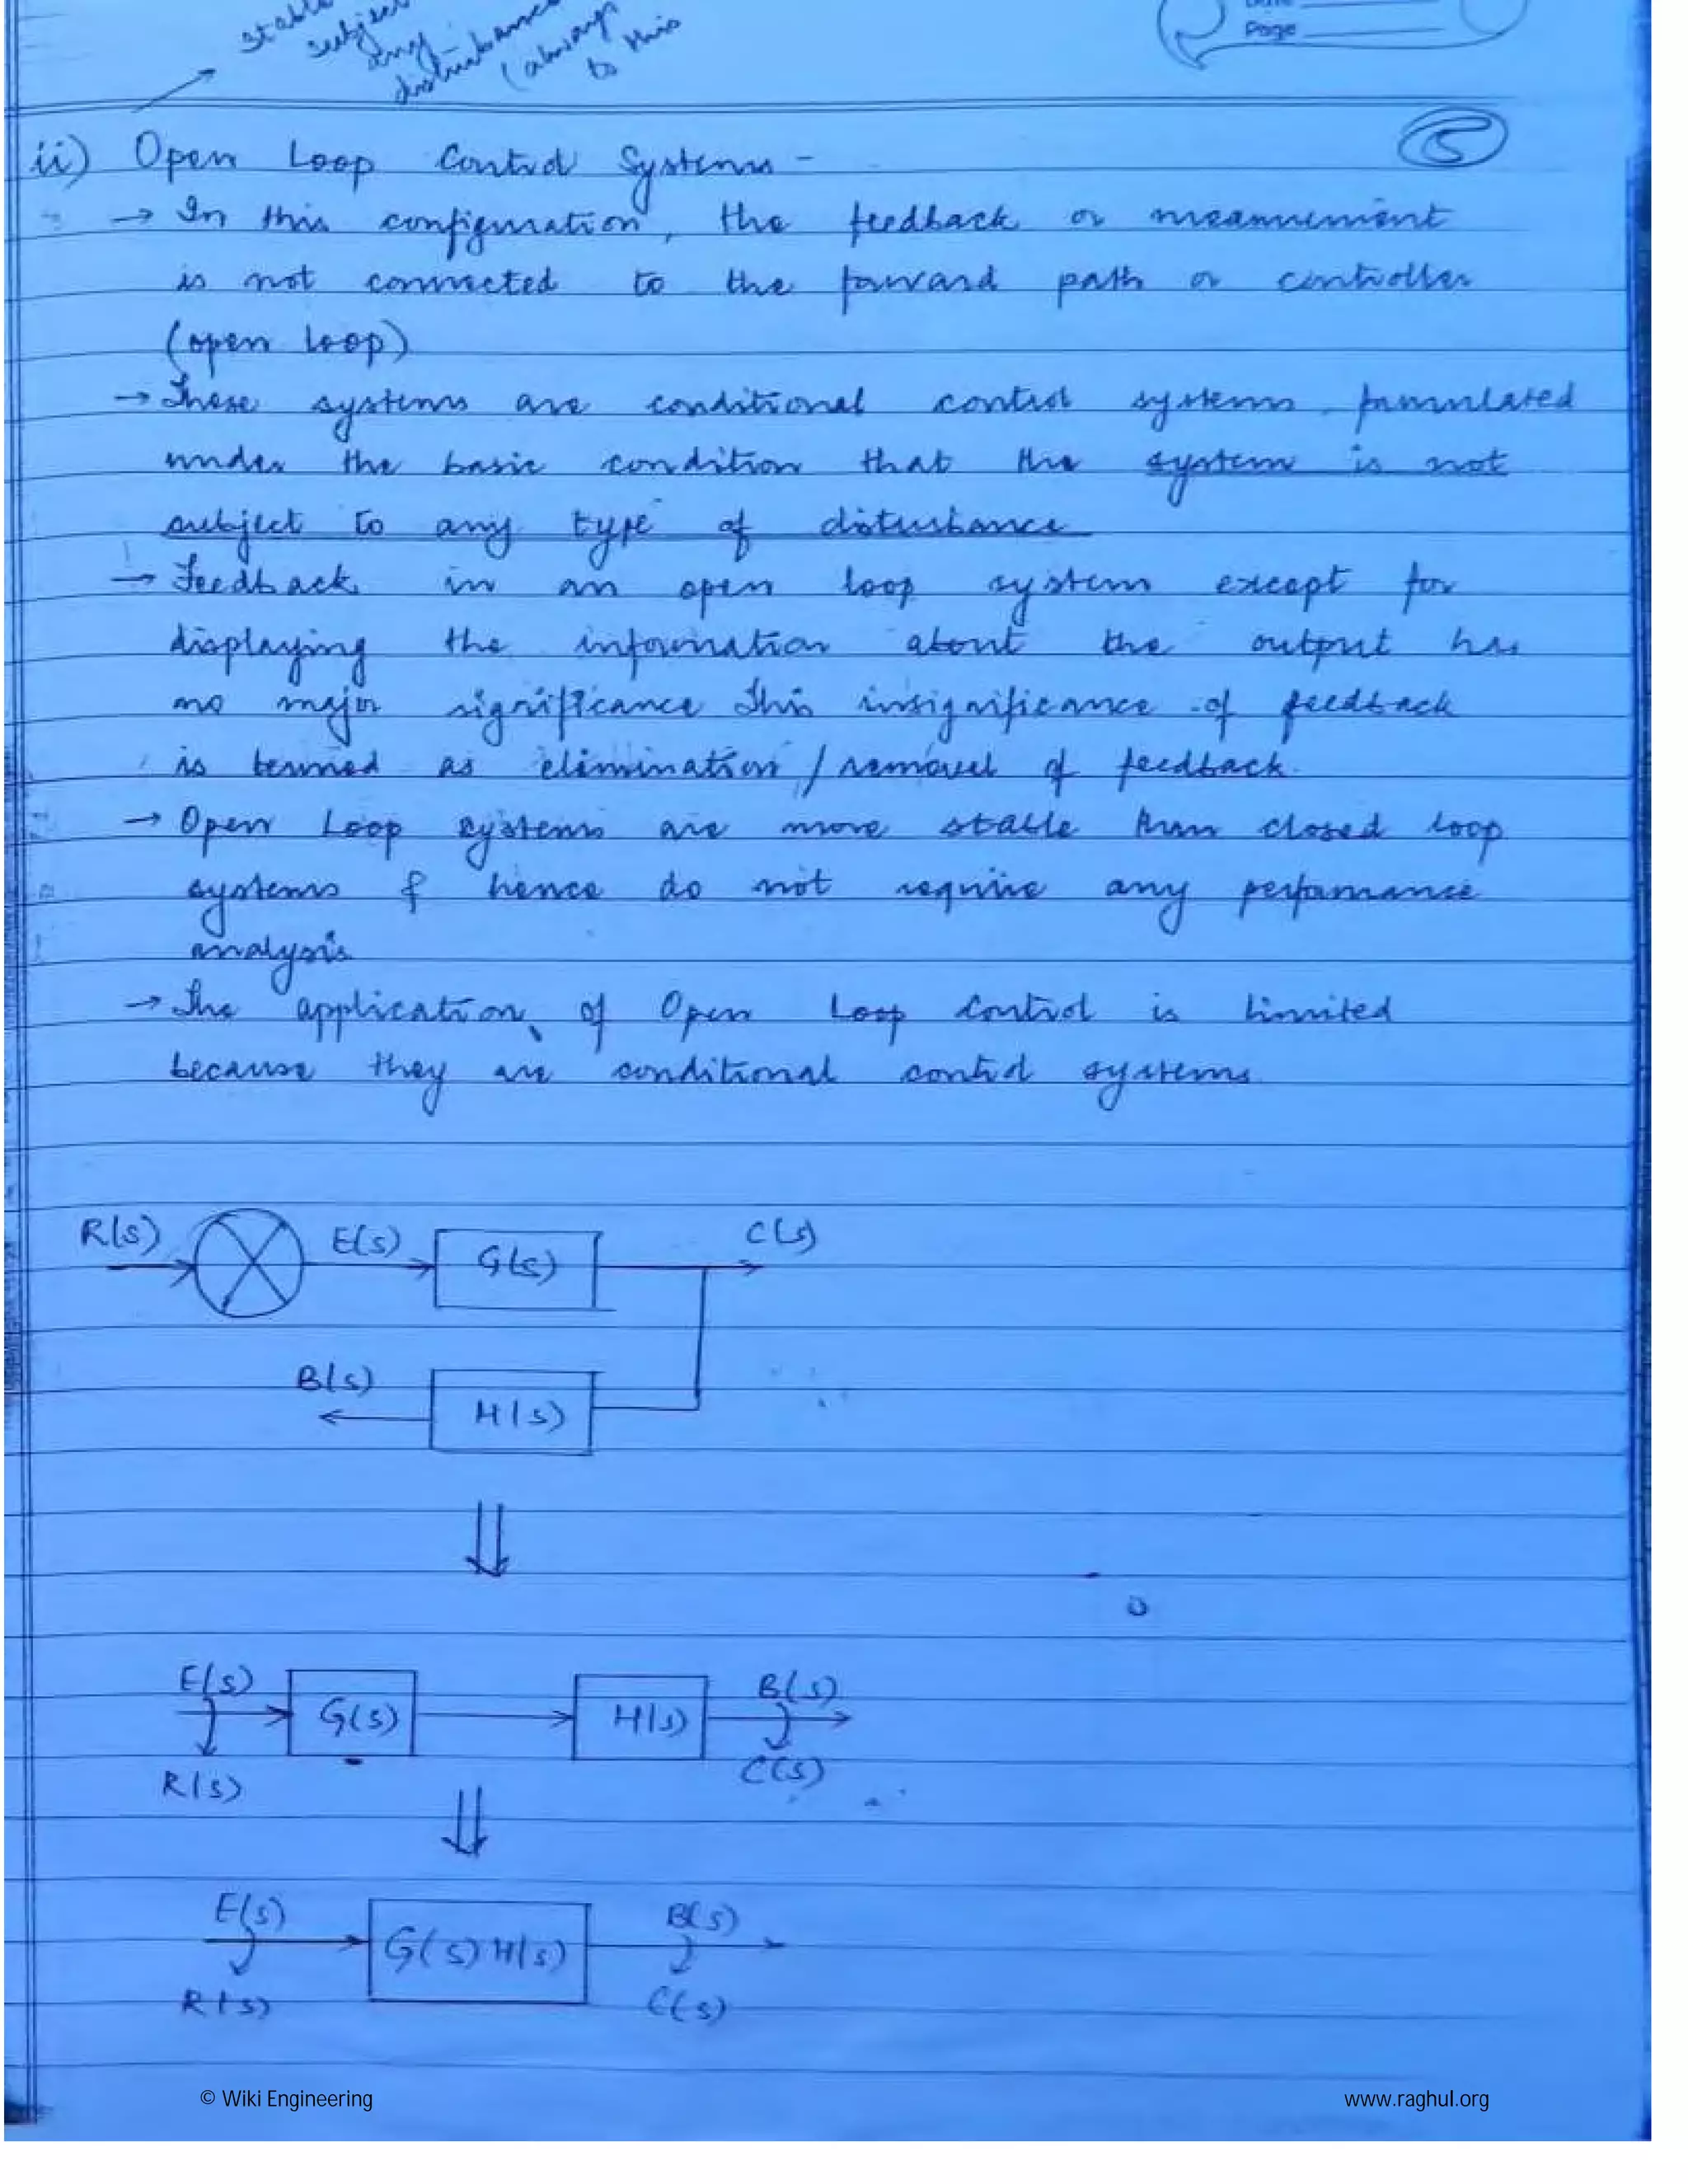 stable
subject
any
disturbance
(always
to this
Page
5
ii) Open Loop Control Systems -
→ In this configuration, the feedback or measurement
is not connected to the forward path or controller
(open loop)
→ These systems are conditional control systems formulated
under the basic condition that the system is not
subject to any type of disturbance
→ Feedback in an open loop system except for
displaying the information about the output has
no major significance This insignificance of feedback
is termed as elimination / removal of feedback.
→ Open Loop systems are more stable than closed loop
systems & hence do not require any performance
analysis
→ The application of Open Loop Control is limited
because they are conditional control systems
R(s) E(s) G(s) C(s)
B(s) H(s)
⇓
E(s) G(s) H(s) B(s)
R(s) C(s)
⇓
E(s) G(s) H(s) B(s)
R(s) C(s)
© Wiki Engineering www.raghul.org